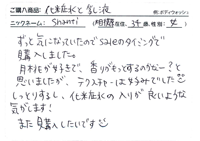 ご購入商品: 化粧水と乳液
例:ボディウォッシュ
ニックネーム: Shanti 在住, 34歳, 性別: 女)
ずっと気になっていたのでsaleのタイミングで
購入しました。
月桃がが好きで、香りがもっとするのかなー?と
思いましたが、テクスチャーは好みでした☺
しっとりするし、化粧水くの入りが良いような
気がします!
また購入したいです☺